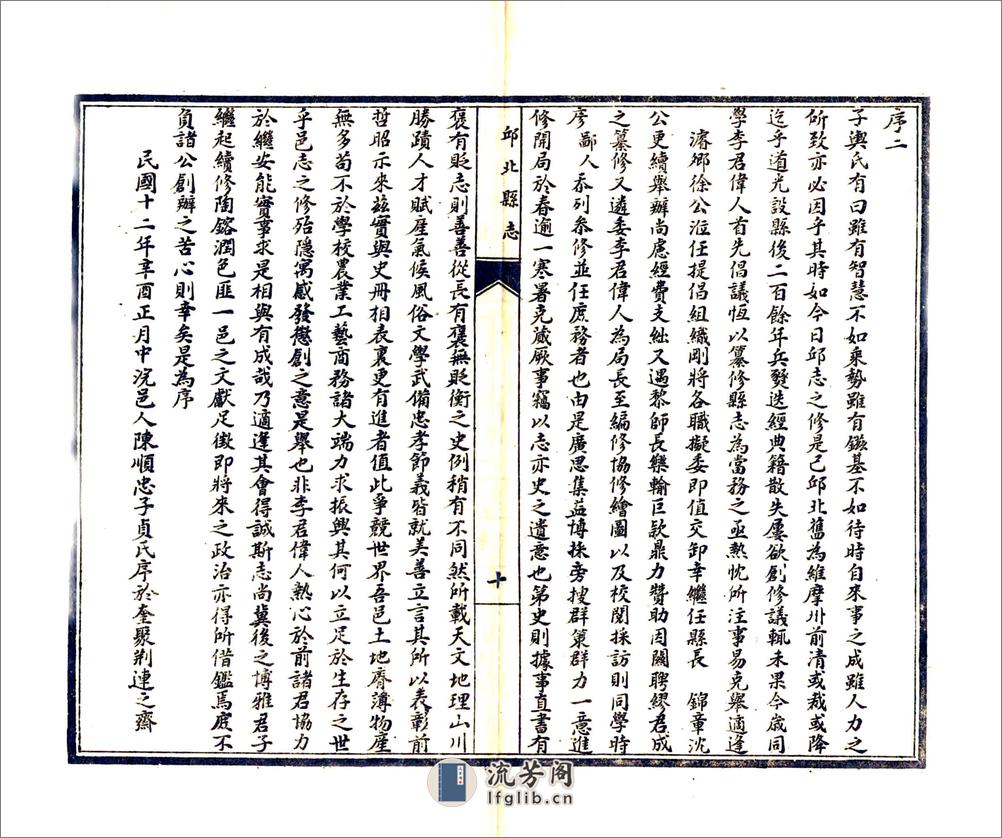 序二
子輿氏有曰雖有智慧不如乘勢雖有鎡基不如待時自來事之成雖人力之
所致亦必因乎其時如今日邱志之修是已邱北舊為維摩州前清或裁或降
迄乎道光設縣後二百餘年兵燹迭經典籍散失屢欲創修議輒未果今歲同
學李君偉人首先倡議恆以纂修縣志為當務之亟熱忱所注事易克舉適逢
濬鄉徐公涖任提倡組織剛將各職擬委即值交卸幸繼任縣長 錦章沈
公更續舉辦尚慮經費支絀又遇黎師長樂輸巨款鼎力贊助因關聘繆君成
之纂修又遴委李君偉人為局長至編修協修繪圖以及校閱採訪則同學時
彥鄙人忝列叅修並任庶務者也由是廣思集益博採旁搜群策群力一意進
修開局於春逾一寒署克蕆厥事竊以志亦史之遺意也第史則據事直書有
邱北縣志
十
褒有貶志則善善從長有褒無貶衡之史例稍有不同然所載天文地理山川
勝蹟人才賦產氣候風俗文學武備忠孝節義皆就美善立言其所以表彰前
哲昭示來茲實與史冊相表裏更有進者值此爭競世界吾邑土地瘠薄物產
無多苟不於學校農業工藝商務諸大端力求振興其何以立足於生存之世
乎邑志之修殆隱寓感發懲創之意是舉也非李君偉人熱心於前諸君協力
於繼安能實事求是相與有成哉乃適逢其會得誠斯志尚冀後之博雅君子
繼起續修陶鎔潤色匪一邑之文獻足徵即將來之政治亦得所借鑑焉庶不
負諸公創辦之苦心則幸矣是為序
民國十二年辛酉正月中浣邑人陳順忠子貞氏序於奎聚荆連之齋
流芳阁
lfglib.cn